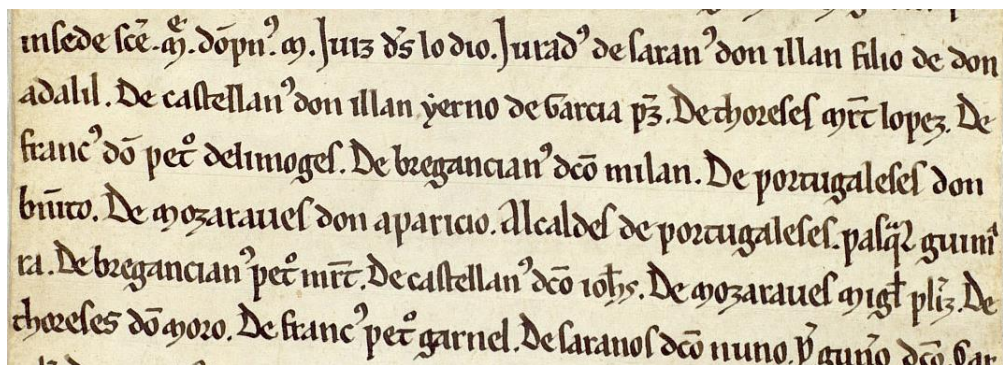 in sede sc̄e. m̄. dōpn᷒. m. Juiz d̄s lo dio. Jurad᷒ de saran᷒ don illan filio de don
adalil. De castellan᷒ don illan yerno de Garcia pz̄. De thoreses mr̄t lopez. De
franc᷒ dō petº delimoges. De bregancian᷒ dc̄o milan. De portugaleses don
bn̄ito. De mozaraues don aparicio. Alcaldes de portugaleses. pasq̄l guima
ra. De bregancian᷒ petº mr̄t. De castellan᷒ dc̄o ioħs. De mozaraues migł plīz. De
thoreses dō moro. De franc᷒ petº garnel. De saranos dc̄o nuno.